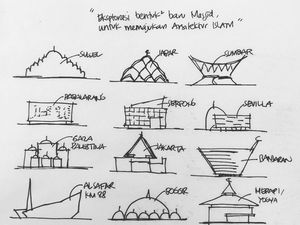 "Eksplorasi bentuk" baru Masjid,
untuk memajukan Arsitektur Islam"
SULSEL
JABAR
SUMBAR
PEMALANG
SERPONG
SEVILLA
GAZA
PALESTINA
JAKARTA
BANJARAN
AL SAFAR
KM 88
BOGOR
MERAPI/
YOGYA